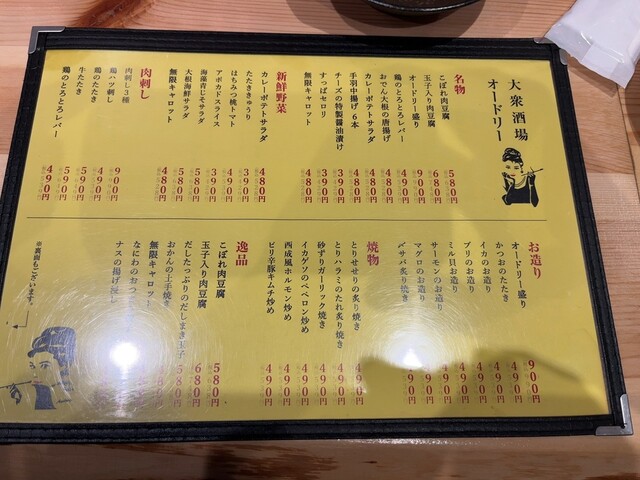 大衆酒場
オードリー
名物
こぼれ肉豆腐 580円
玉子入り肉豆腐 680円
オードリー盛り 900円
鶏のとろとろレバー 490円
おでん大根の唐揚げ 480円
カレーポテトサラダ 480円
手羽中揚げ 6本 480円
チーズの特製醤油漬け 390円
すっぱセロリ 390円
無限キャロット 480円
新鮮野菜
カレーポテトサラダ 480円
たたききゅうり 390円
はちみつ桃トマト 490円
アボカドスライス 390円
海藻青じそサラダ 580円
大根海鮮サラダ 580円
無限キャロット 480円
肉刺し
肉刺し3種 900円
鶏ハツ刺し 490円
鶏のたたき 590円
牛たたき 590円
鶏のとろとろレバー 490円
お造り
オードリー盛り 900円
かつおのたたき 490円
イカのお造り 490円
ブリのお造り 490円
ミル貝お造り 490円
サーモンのお造り
マグロのお造り
〆サバ炙り焼き 490円
焼物
とりせせりの炙り焼き 490円
とりハラミのたれ炙り焼き 490円
砂ずりガーリック焼き 490円
イカゲソのペペロン炒め 490円
西成風ホルモン炒め 490円
ピリ辛豚キムチ炒め 490円
逸品
こぼれ肉豆腐 580円
玉子入り肉豆腐 680円
だしたっぷりのだしまき玉子 580円
おかんの上手焼き
無限キャロット
なにわのおつ
ナスの揚げ浸し
※裏面もございます。